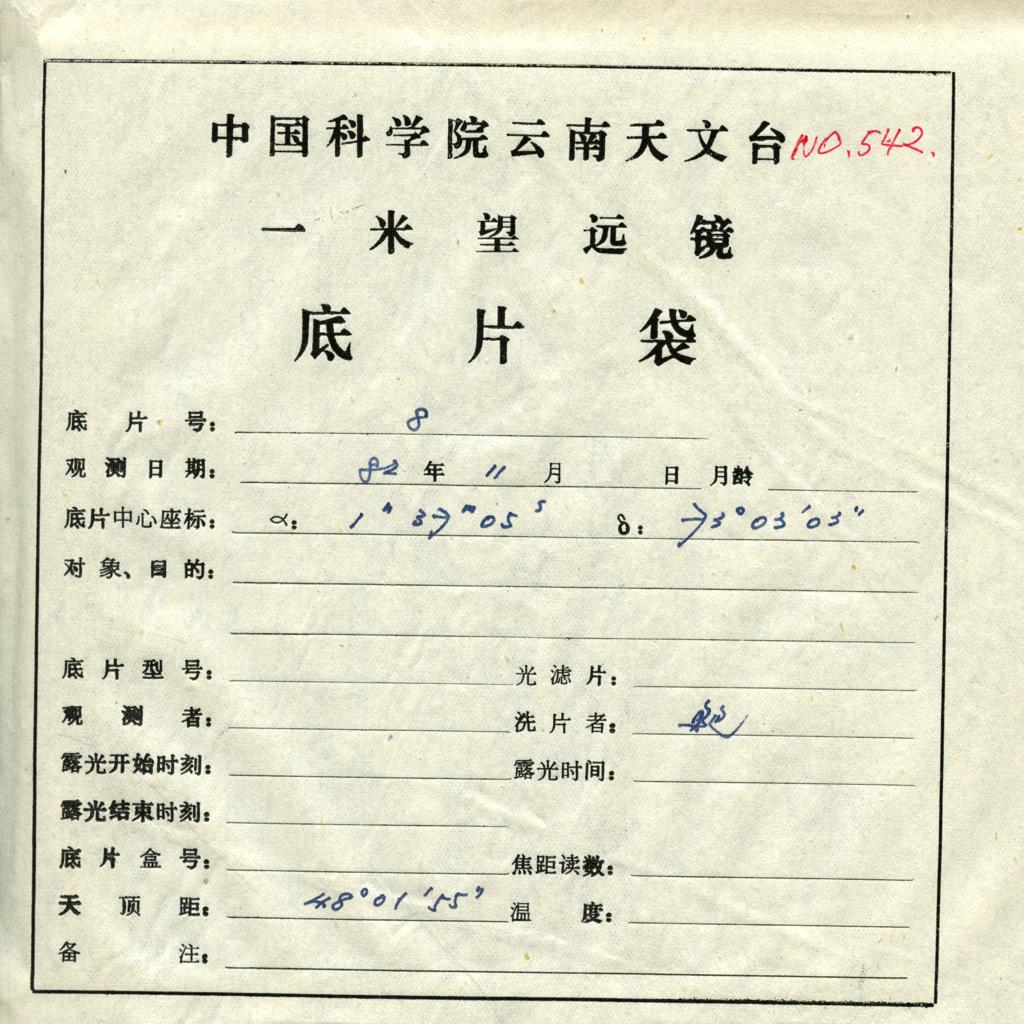 中国科学院云南天文台 NO.542.
一米望远镜
底片袋
底片号: 8
观测日期: 82年 11月 日 月龄
底片中心座标: α: 1ʰ 37ᵐ 05ˢ δ: 73°03′03″
对象、目的:
底片型号: 光滤片:
观测者: 洗片者:
露光开始时刻: 露光时间:
露光结束时刻:
底片盒号: 焦距读数:
天顶距: 48°01′55″ 温度:
备注: